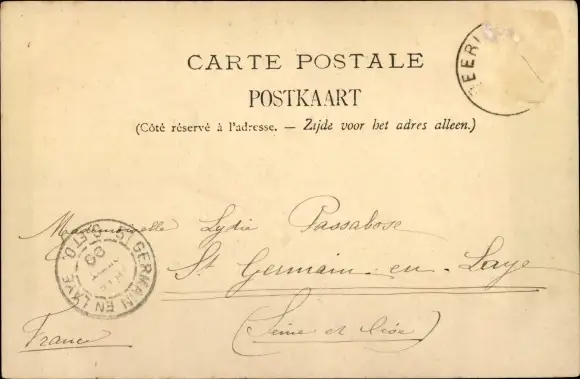 CARTE POSTALE
POSTKAART
(Côté réservé à l'adresse. — Zijde voor het adres alleen.)
EERI
Mademoiselle Lydie Passabose
St Germain-en-Laye
(Seine et Oise)
France
ST GERMAIN EN LAYE